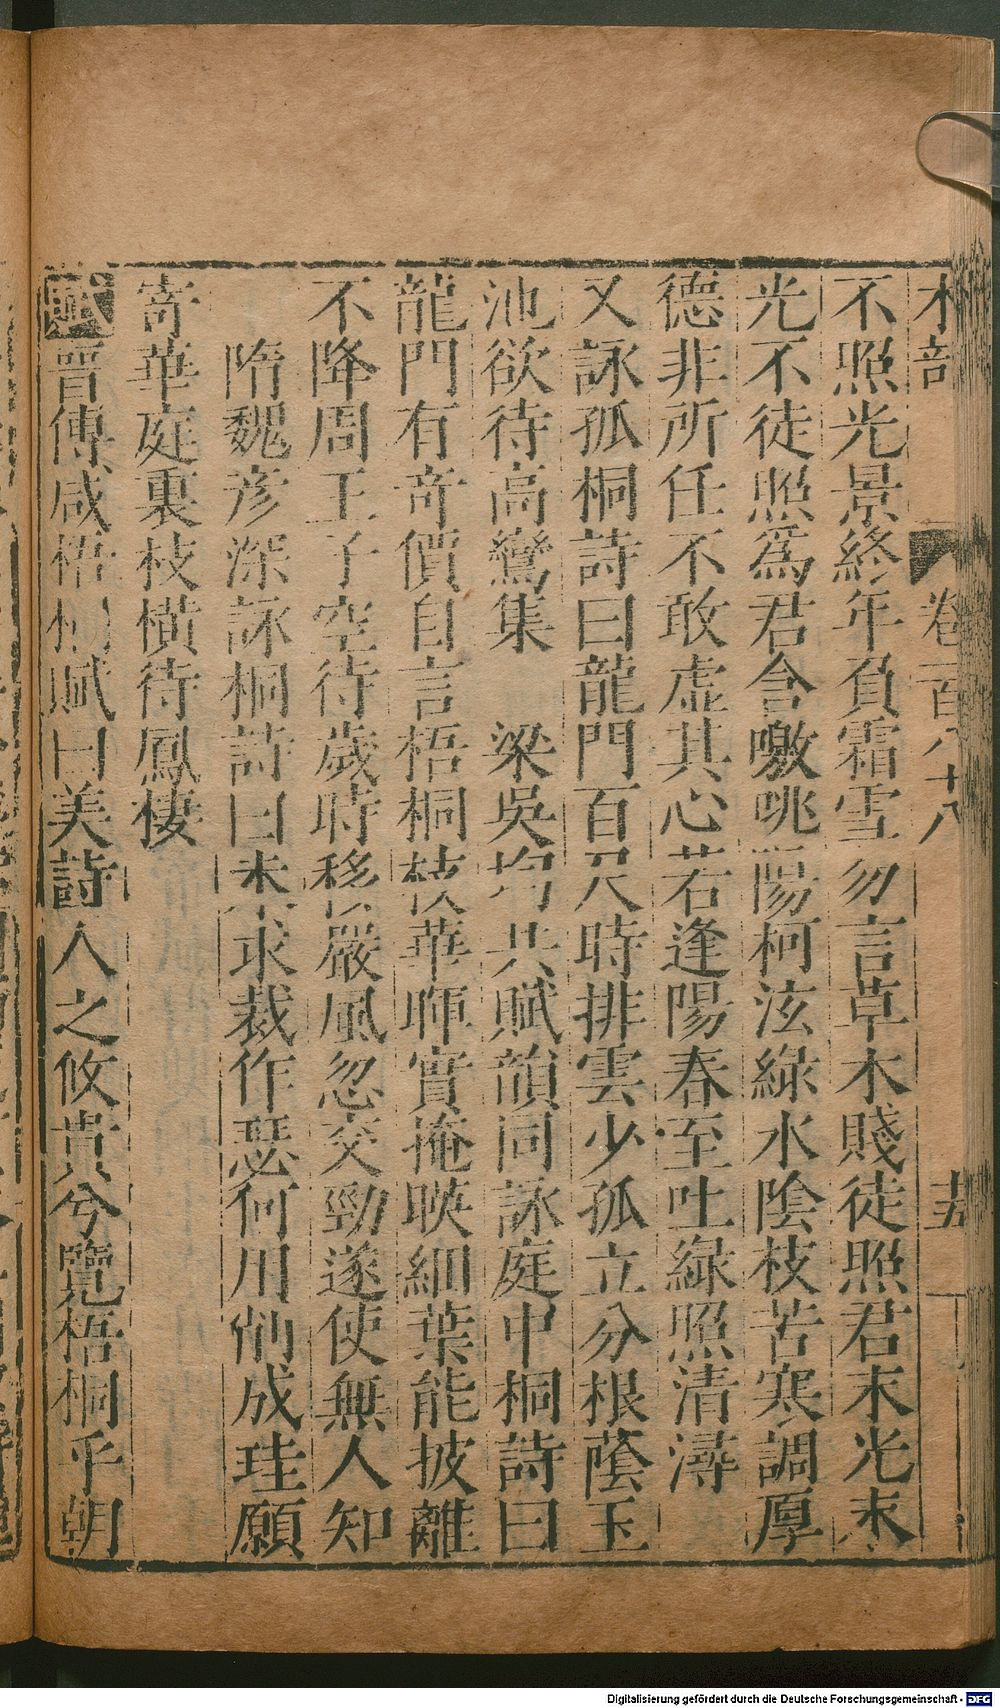 木部 卷一百八十八 十五
不照光景終年負霜雪勿言草木賤徒照君末光末
光不徒照爲君含噭咷陽柯泫綠水陰枝苦寒調厚
德非所任不敢虛其心若逢陽春至吐綠照清潯
又詠孤桐詩曰龍門百尺時排雲少孤立分根蔭玉
池欲待高鸞集 梁吳均共賦韻同詠庭中桐詩曰
龍門有奇價自言梧桐枝華暉實掩暎細葉能披離
不降周王子空待歲時移嚴風忽交勁遂使無人知
隋魏彥深詠桐詩曰未求裁作瑟何用削成珪願
寄華庭裏枝橫待鳳棲
賦晉傅咸梧桐賦曰美詩人之攸貴兮覽梧桐乎朝
Digitalisierung gefördert durch die Deutsche Forschungsgemeinschaft - DFG